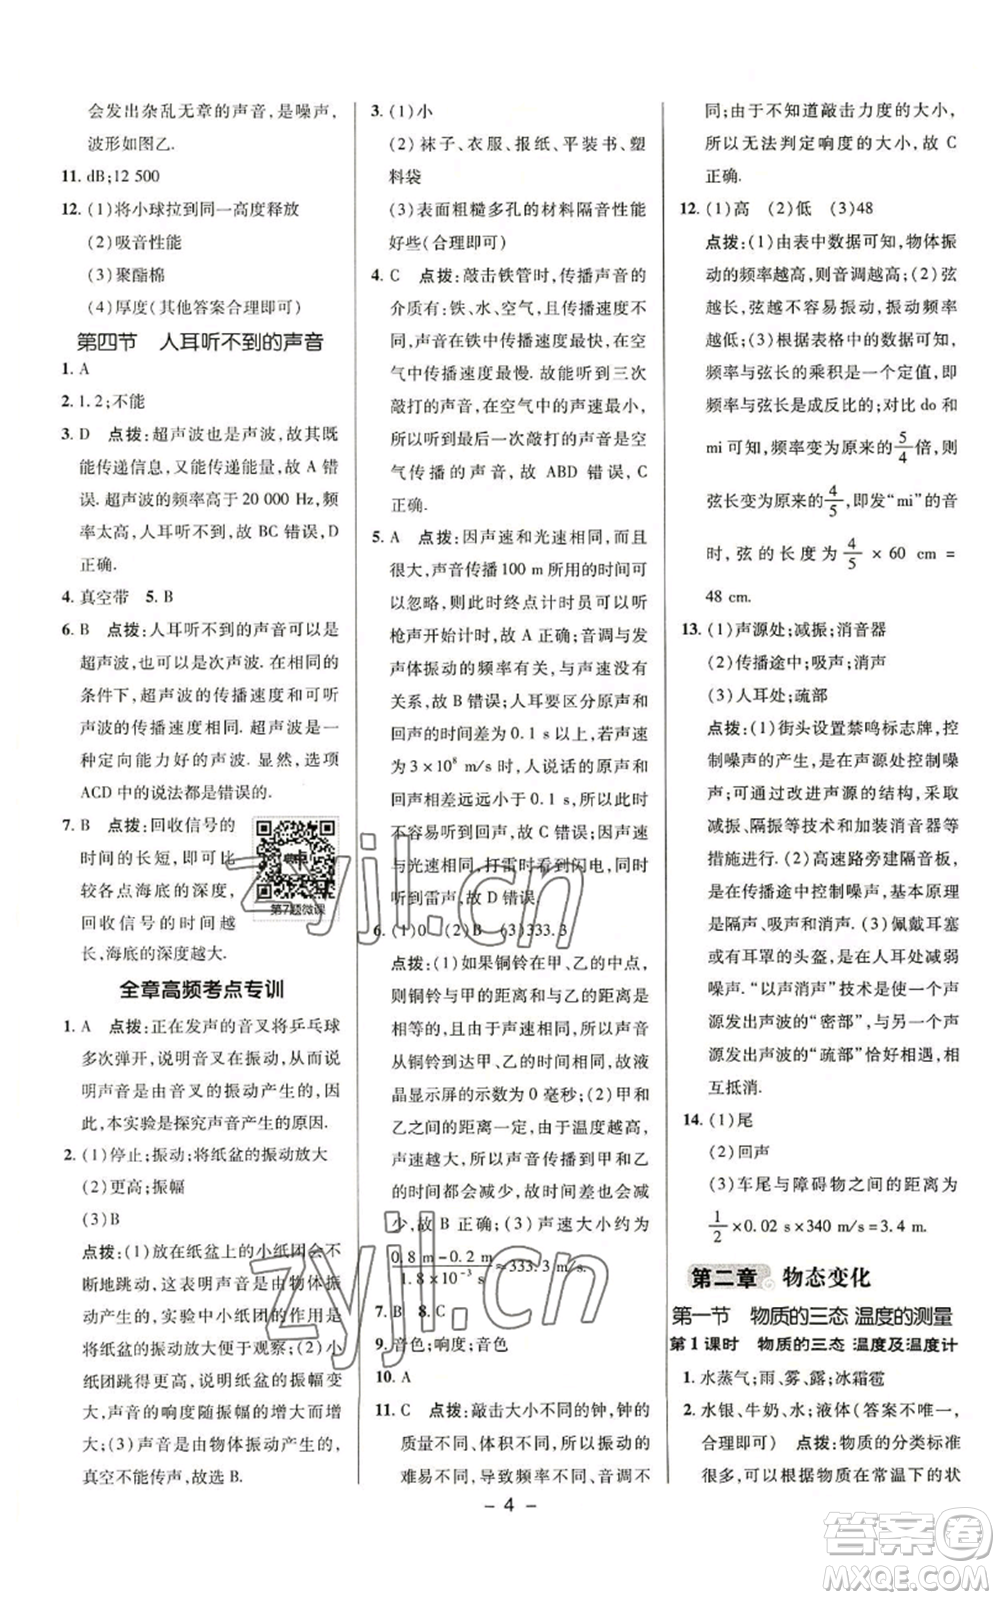 会发出杂乱无章的声音,是噪声,
波形如图乙.
11. dB;12 500
12. (1)将小球拉到同一高度释放
(2)吸音性能
(3)聚酯棉
(4)厚度(其他答案合理即可)
第四节 人耳听不到的声音
1. A
2. 1. 2;不能
3. D 点拨:超声波也是声波,故其既
能传递信息,又能传递能量,故 A 错
误. 超声波的频率高于 20 000 Hz,频
率太高,人耳听不到,故 BC 错误,D
正确.
4. 真空带 5. B
6. B 点拨:人耳听不到的声音可以是
超声波,也可以是次声波. 在相同的
条件下,超声波的传播速度和可听
声波的传播速度相同. 超声波是一
种定向能力好的声波. 显然,选项
ACD 中的说法都是错误的.
7. B 点拨:回收信号的
时间的长短,即可比
较各点海底的深度,
回收信号的时间越
长,海底的深度越大.
第7题微课
全章高频考点专训
1. A 点拨:正在发声的音叉将乒乓球
多次弹开,说明音叉在振动,从而说
明声音是由音叉的振动产生的. 因
此,本实验是探究声音产生的原因.
2. (1)停止;振动;将纸盆的振动放大
(2)更高;振幅
(3)B
点拨:(1)放在纸盆上的小纸团会不
断地跳动,这表明声音是由物体振动
产生的,实验中小纸团的作用是
将纸盆的振动放大,便于观察;(2)小
纸团跳得越高,说明纸盆的振幅越
大,声音的响度随振幅的增大而增
大;(3)声音是由物体振动产生的,
真空不能传声,故选 B.
3. (1)小
(2)袜子、衣服、报纸、平装书、塑
料袋
(3)表面粗糙多孔的材料隔音性能
好些(合理即可)
4. C 点拨:敲击铁管时,传播声音的
介质有:铁、水、空气,由于介质不
同,声音在铁中传播速度最快,在空
气中传播速度最慢. 故能听到三次
敲打的声音,在空气中的声速最小,
所以听到最后一次敲打的声音是空
气传播的声音,故 ABD 错误,C
正确.
5. A 点拨:因回声速和光速相同,而且
很大,声音传播 100 m 所用的时间可
以忽略,则此时终点计时员可以听
枪声开始计时,故 A 正确;音调与发
声体振动的频率有关,与声速没有
关系,故 B 错误;人耳要区分原声和
回声的时间差为 0. 1 s 以上,而声速
为 3×10⁸ m/s 时,人说话的原声和
回声时间差远远小于 0. 1 s,所以不
容易听到回声,故 C 错误;因声速
与光速相同,打雷时看到闪电,同时
听到雷声,故 D 错误.
6. (1)0 (2)B (3)333. 3
点拨:(1)如果铜铃在甲、乙的中点,
则铜铃与甲的距离和与乙的距离是
相等的,并且由于声速相同,所以声音
从铜铃到达甲、乙的时间相等,故液
晶显示屏的示数为 0 毫秒;(2)甲和
乙之间的距离一定,由于温度越高,
声速越大,所以声音传播到甲和乙
的时间都会减少,它们的时间差也
会减少,故 B 正确;(3)声速大小约为
0. 8 m-0. 2 m/1. 8×10⁻³ s≈333. 3 m/s.
7. B 8. C
9. 音色;响度;音色
10. A
11. C 点拨:敲击大小不同的钟,钟的
质量不同、体积不同,所以振动的
难易不同,导致频率不同、音调不
同;由于不知道敲击力度的大小,
所以无法判定响度的大小,故 C
正确.
12. (1)高 (2)低 (3)48
点拨:(1)由表中数据可知,物体振
动的频率越高,则音调越高;(2)弦
越长,越不容易振动,振动频率
越低;(3)根据表格中的数据可知,
频率与弦长的乘积是一个定值,即
频率与弦长是成反比的;对比 do 和
mi 可知,频率变为原来的 5/4 倍,则
弦长变为原来的 4/5,即发“mi”的音
时,弦的长度为 4/5 × 60 cm =
48 cm.
13. (1)声源处;减振;消音器
(2)传播途中;吸声;消声
(3)人耳处;疏部
点拨:(1)街头设置禁鸣标志牌,控
制噪声的产生,是在声源处控制噪
声;可通过改进声源的结构,采取
减振、隔振等技术和加装消音器等
措施进行. (2)高速路旁建隔音板,
是在传播途中控制噪声,基本原理
是隔声、吸声和消声. (3)佩戴耳塞
或有耳罩的头盔,是在人耳处控制
噪声. “以声消声”技术是使一个声
源发出声波的“密部”,与另一个声
源发出声波的“疏部”恰好相遇,相
互抵消.
14. (1)尾
(2)回声
(3)车尾与障碍物之间的距离为
1/2×0. 02 s×340 m/s=3. 4 m.
第二章 物态变化
第一节 物质的三态 温度的测量
第 1 课时 物质的三态 温度及温度计
1. 水蒸气;雨、雾、露;冰霜雹
2. 水银、牛奶、水;液体(答案不唯一,
合理即可) 点拨:物质的分类标准
很多,可以根据物质在常温下的状
- 4 -
zyjl.cn
zyjl.cn
答案圈
MXQE.COM